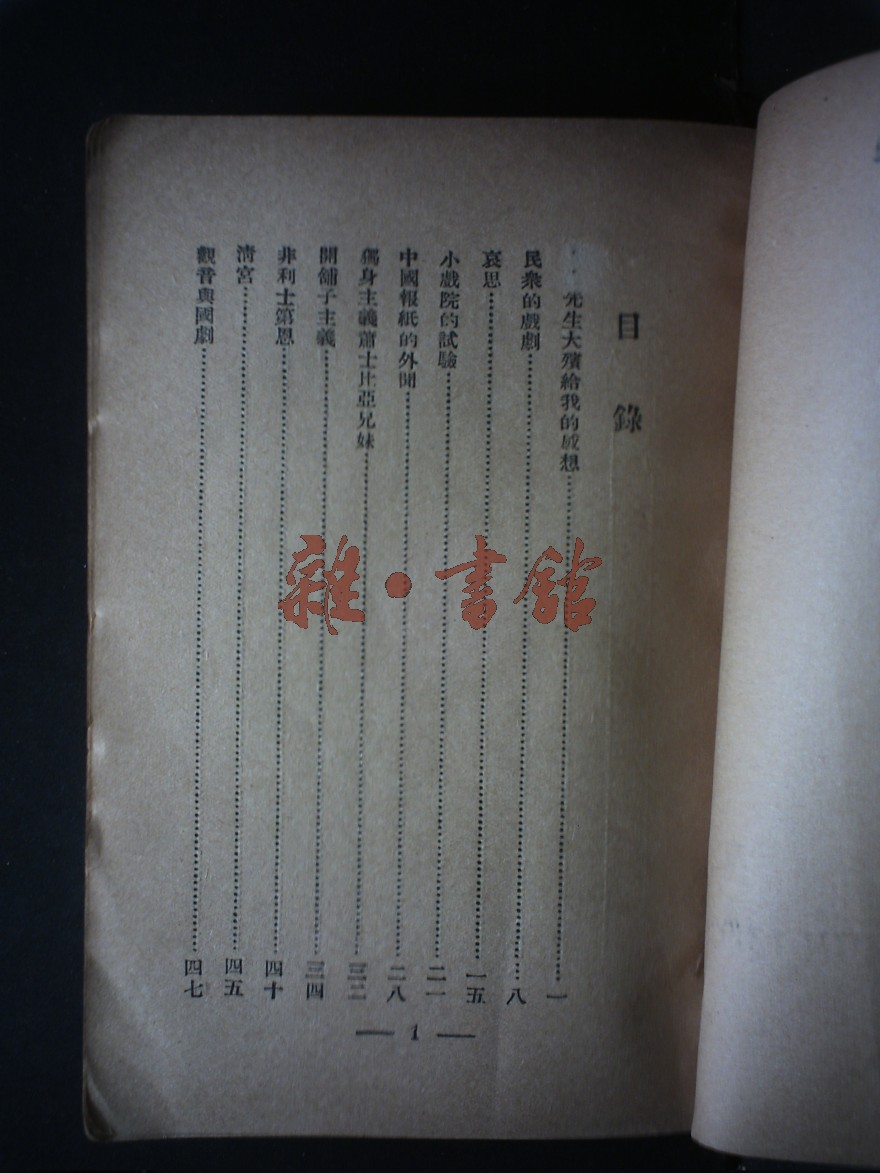 目錄
先生大殯給我的感想⋯⋯一
民衆的戲劇⋯⋯八
哀思⋯⋯一五
小戲院的試驗⋯⋯二一
中國報紙的外聞⋯⋯二八
獨身主義蕭士比亞兄妹⋯⋯三二
開舖子主義⋯⋯三四
非利士第恩⋯⋯四十
清宮⋯⋯四五
觀音與國劇⋯⋯四七
— 1 —
雜·書館